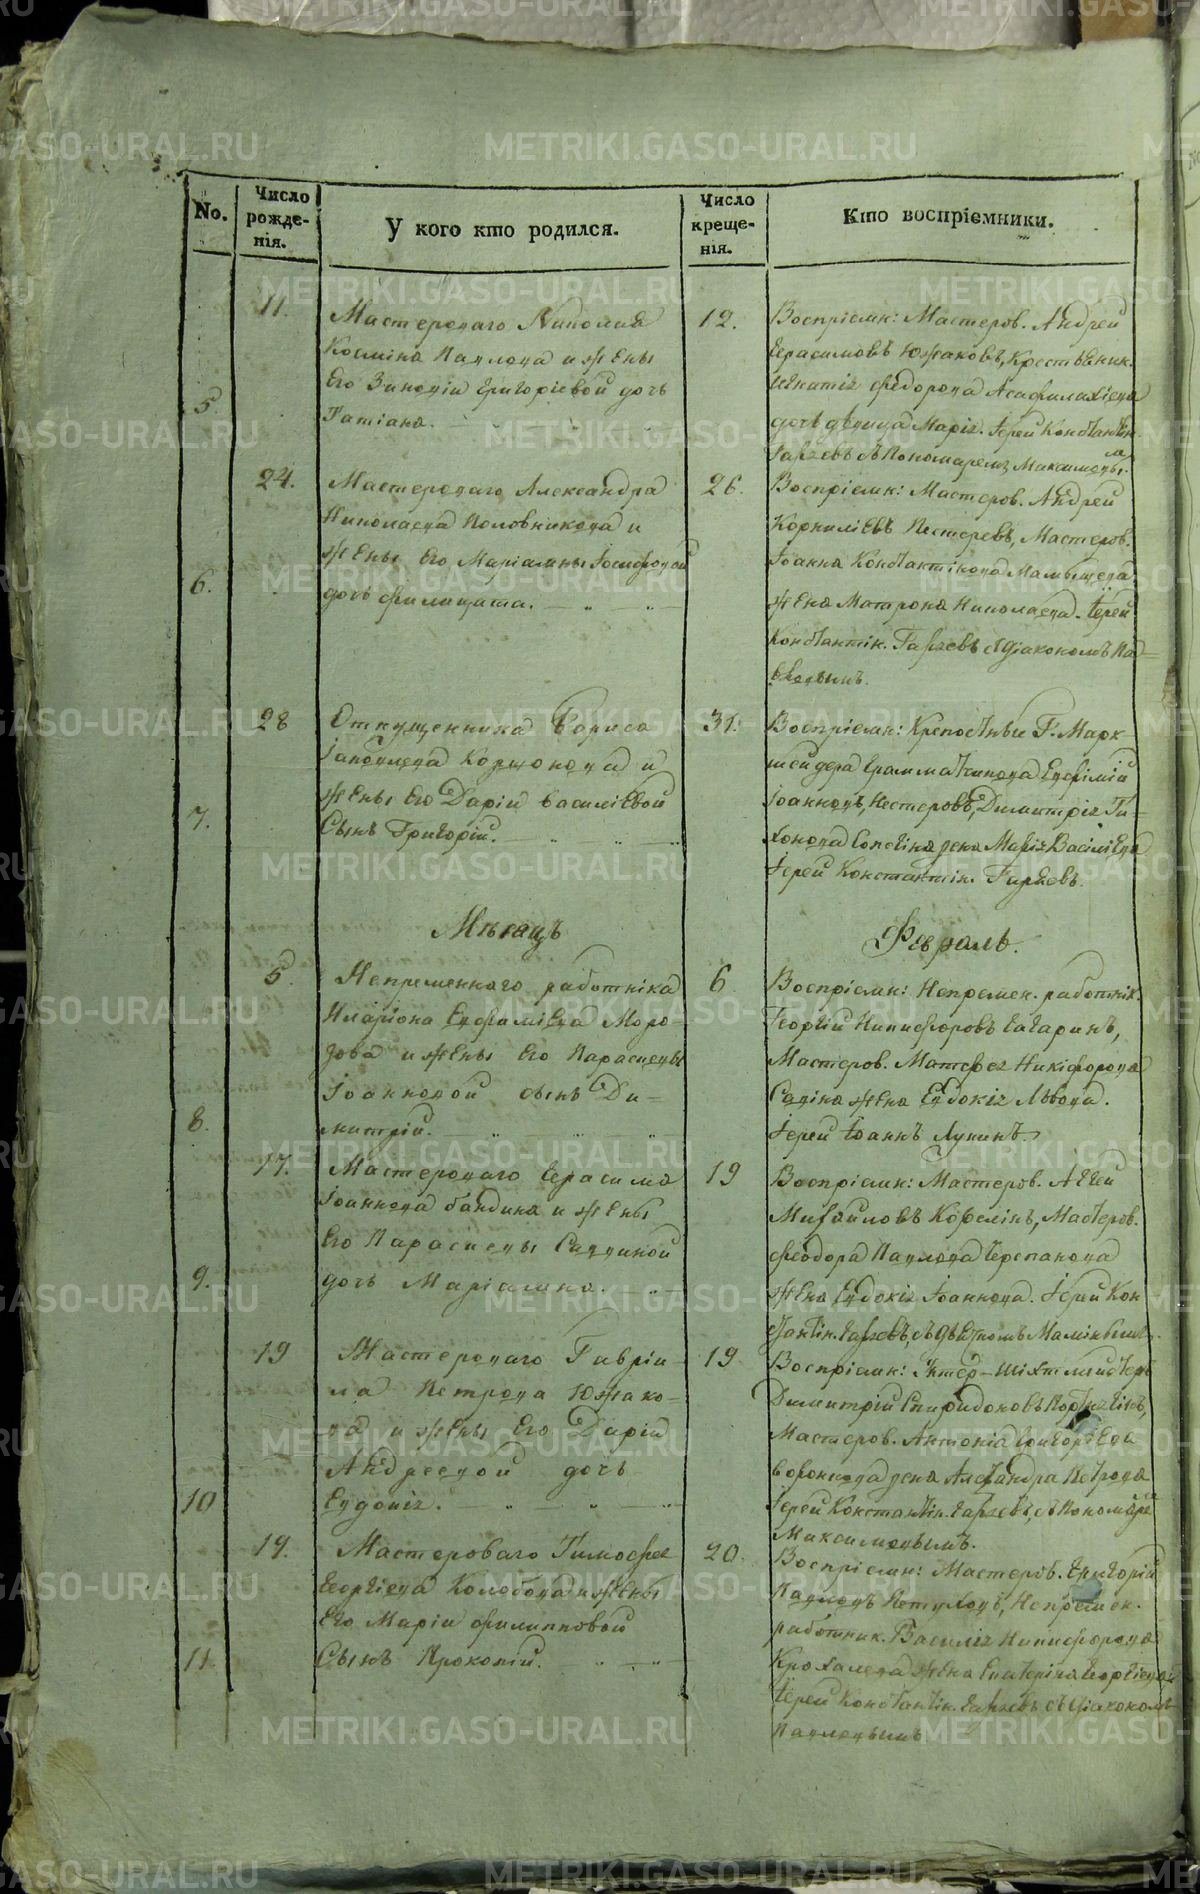 No.
Число рожденія.
У кого кто родился.
Число крещенія.
Кто воспріемники.
11.
Мастероваго Николая
Космина Павлова и жены
Его Зиновіи Григоріевой дочь
5
Татіана.
12.
Воспріемн: Мастеров. Андрей
Герасимовъ Южаковъ, Крестьянин.
Игнатія Федорова
дочь девица Марія. Іерей Константин.
Гаряевъ с Пономаремъ Максимовы.
24.
Мастероваго Александра
Николаева Половникова и
жены Его Маріамны Іосифовой
6.
дочь Филицата.
26.
Воспріемн: Мастеров. Андрей
Корниліевъ Пестеревъ, Мастеров.
Іоанна Константинова Мамышева
жена Матрона Николаева. Іерей
Константін. Гаряевъ с Діакономъ Па-
вловымъ.
28
Отпущенника Бориса
Іаковлева и
жены Его Даріи Василіевой
7.
Сынъ Григорій.
31.
Воспріемн: Крепостный Г. Марк-
шейдера Грамматикова Евфимій
Іоанновъ Нестеровъ, Димитрія Ти-
хонова жена Марія Василіева
Іерей Константін. Гаряевъ.
Месяцъ
Февраль.
5.
Непременнаго работніка
Иларіона Евфиміева Моро-
зова и жены Его Параскевы
Іоанновой сынъ Ди-
8.
митрій.
6
Воспріемн: Непремен. работнік.
Георгій Никифоровъ Гагаринъ,
Мастеров. Матфея Никіфорова
Савіна жена Евдокія Львова.
Іерей Іоаннъ Лукинъ.
17.
Мастероваго Герасима
Іоаннова Бандина и жены
Его Параскевы Саввиной
9.
дочь Маріамна.
19
Воспріемн: Мастеров. Аггей
Михайловъ Кобелінъ, Мастеров.
Феодора Павлова Черепанова
жена Евдокія Іоаннова. Іерей Кон
стантін. Гаряевъ, с Дьячкомъ Маминымъ.
19
Мастероваго Гавріи-
ла Петрова Южако-
ва и жены Его Даріи
Андреевой дочь
10
Евдокія.
19.
Воспріемн: Унтер-Шихтмейстеръ
Димитрій Спиридоновъ
Мастеров. Антоніа Григоріева
Воронцова жена Александра Петрова
Іерей Константін. Гаряевъ, с Пономаремъ
Максимовымъ.
19.
Мастероваго Тимофея
Георгіева Колобова и жены
Его Маріи Филипповой
11.
Сынъ Прокопій.
20.
Воспріемн: Мастеров. Григорій
Павловъ Петуховъ, Непремен.
работник. Василія Никифорова
Крохалева жена Екатеріна Георгіева
Іерей Константін. Гаряевъ с Діакономъ
Павловымъ